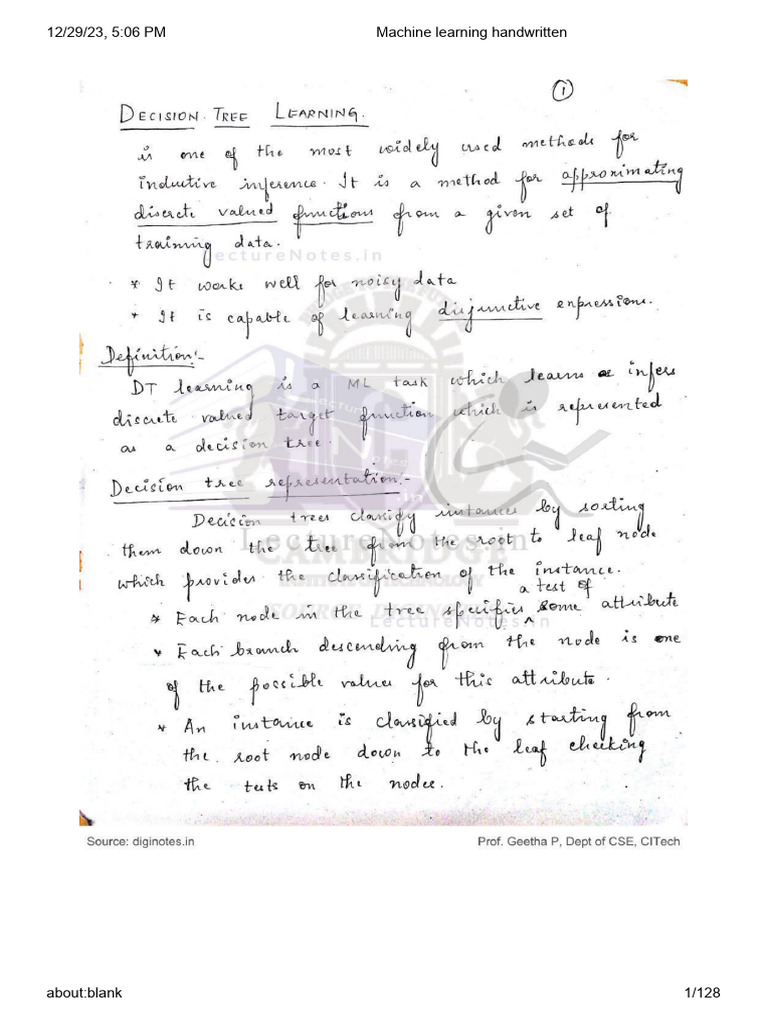 12/29/23, 5:06 PM Machine learning handwritten
1
DECISION TREE LEARNING.
is one of the most widely used methods for
inductive inference. It is a method for approximating
discrete valued functions from a given set of
training data.
LectureNotes.in
* It works well for noisy data
* It is capable of learning disjunctive expressions.
Definition:-
DT learning is a ML task which learns or infers
discrete valued target function which is represented
as a decision tree.
Decision tree representation:-
Decision trees classify instances by sorting
them down the tree from the root to leaf node
LectureNotes.in
CAMBRIDGE
INSTITUTE OF TECHNOLOGY
which provides the classification of the instance.
a test of
* Each node in the tree specifies ^ some attribute
LectureNotes.in
* Each branch descending from the node is one
of the possible values for this attribute.
* An instance is classified by starting from
the root node down to the leaf checking
the tests on the nodes.
Source: diginotes.in Prof. Geetha P, Dept of CSE, CITech
about:blank 1/128